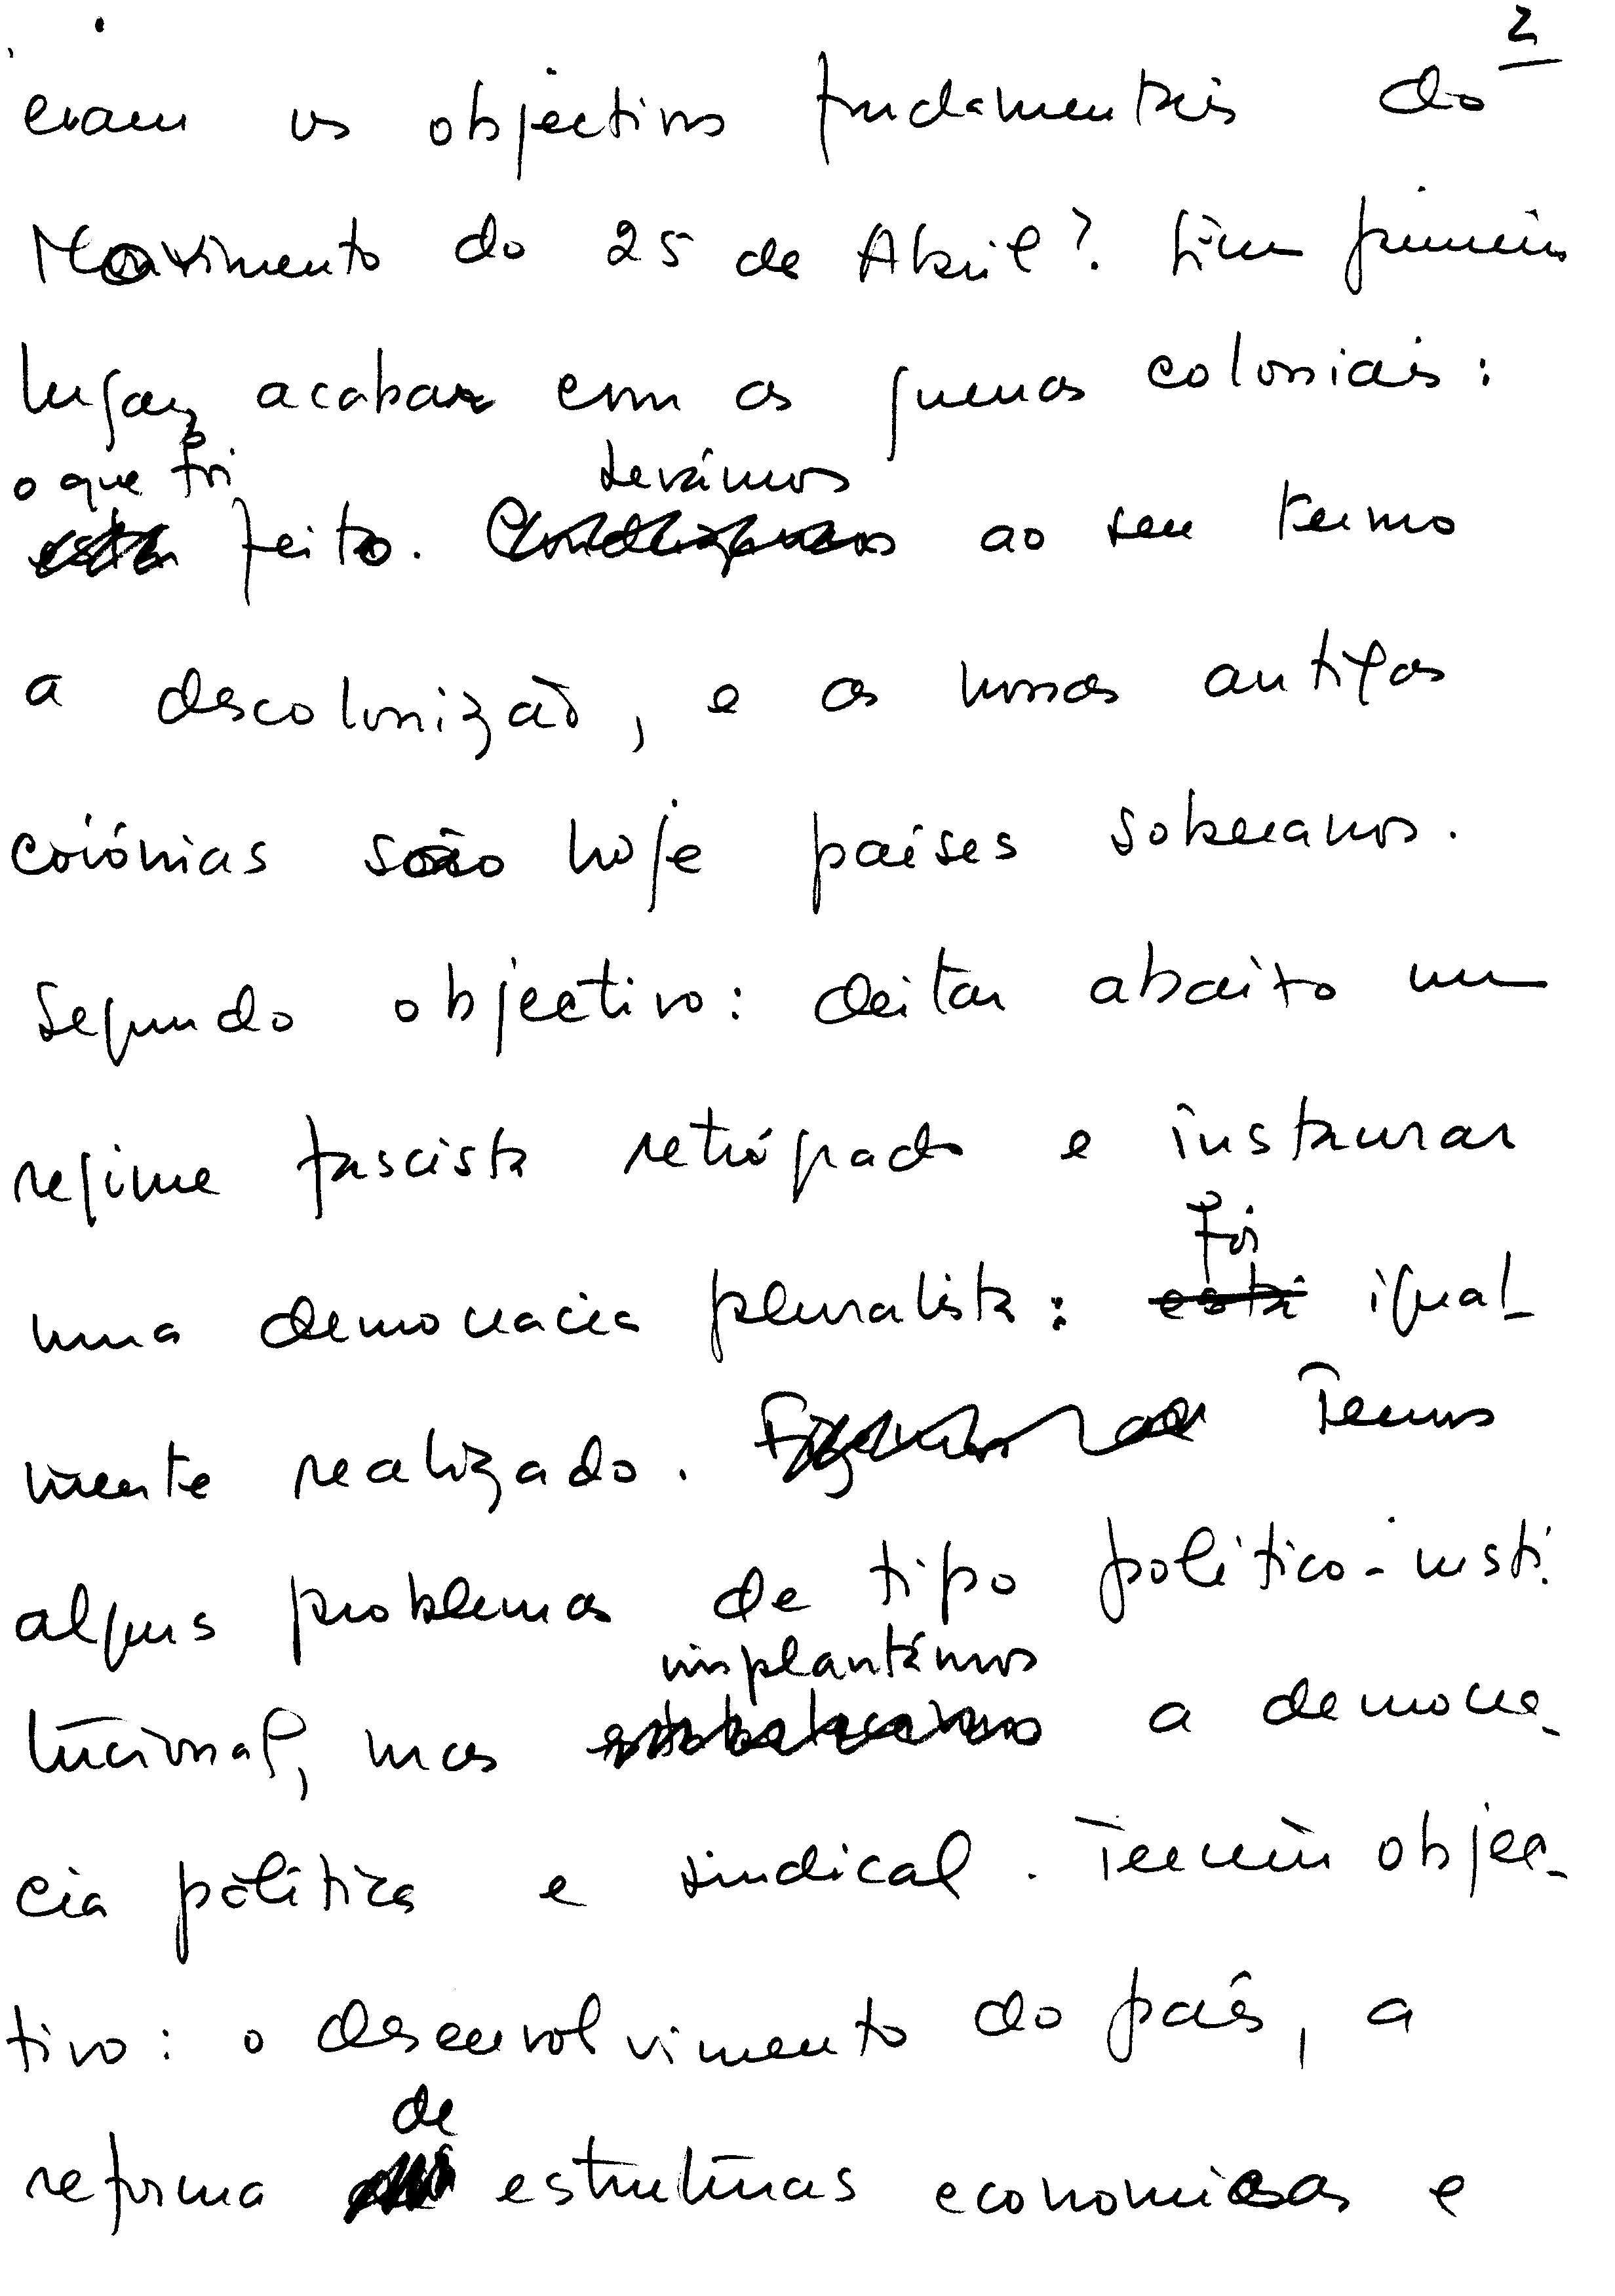 2
eram os objectivos fundamentais do
Movimento do 25 de Abril? Em primeiro
lugar, acabar com as guerras coloniais:
o que foi levámos
está feito. ao seu termo
a descolonização, e as nossas antigas
colónias são hoje países soberanos.
Segundo objectivo: deitar abaixo um
regime fascista retrógrado e instaurar
foi
uma democracia pluralista: está igual-
mente realizado. Temos
alguns problemas de tipo político-insti-
implantámos
tucional, mas a democra-
cia política e sindical. Terceiro objec-
tivo: o desenvolvimento do país, a
de
reforma estruturas economicas e